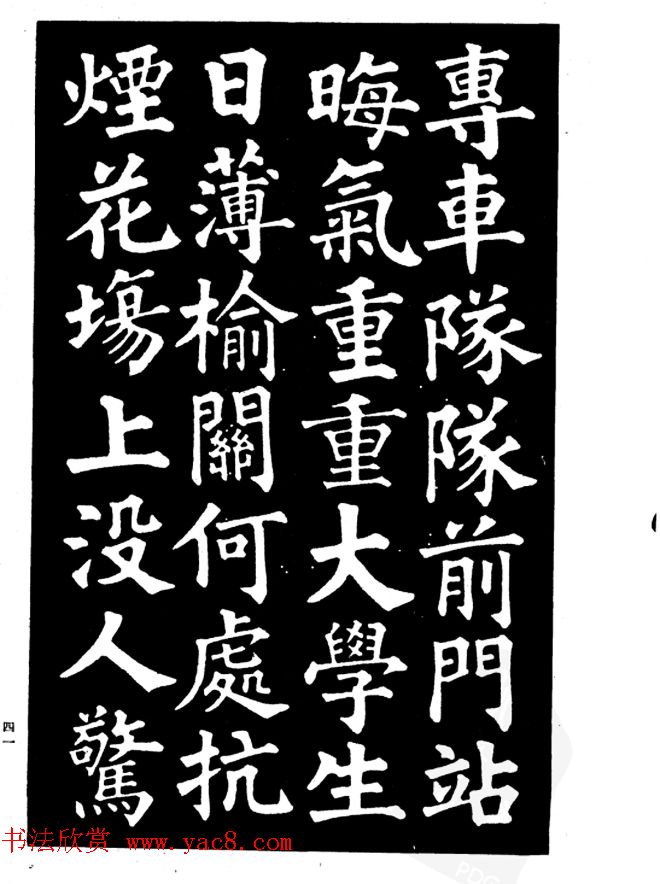 專車隊隊前門站
晦氣重重大學生
日薄榆關何處抗
煙花塲上没人驚
四一
书法欣赏 www.yac8.com
PDG